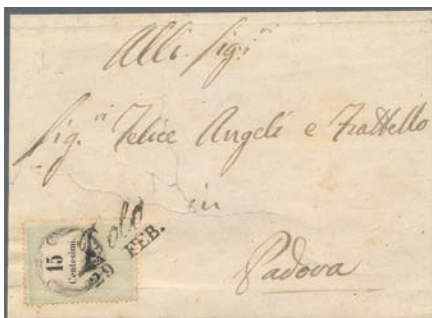 Alli. Sig.ri
Sig.ri Felice Angeli e Frattello
in
Padova
15
Centesimi
Dolo
29 FEB.